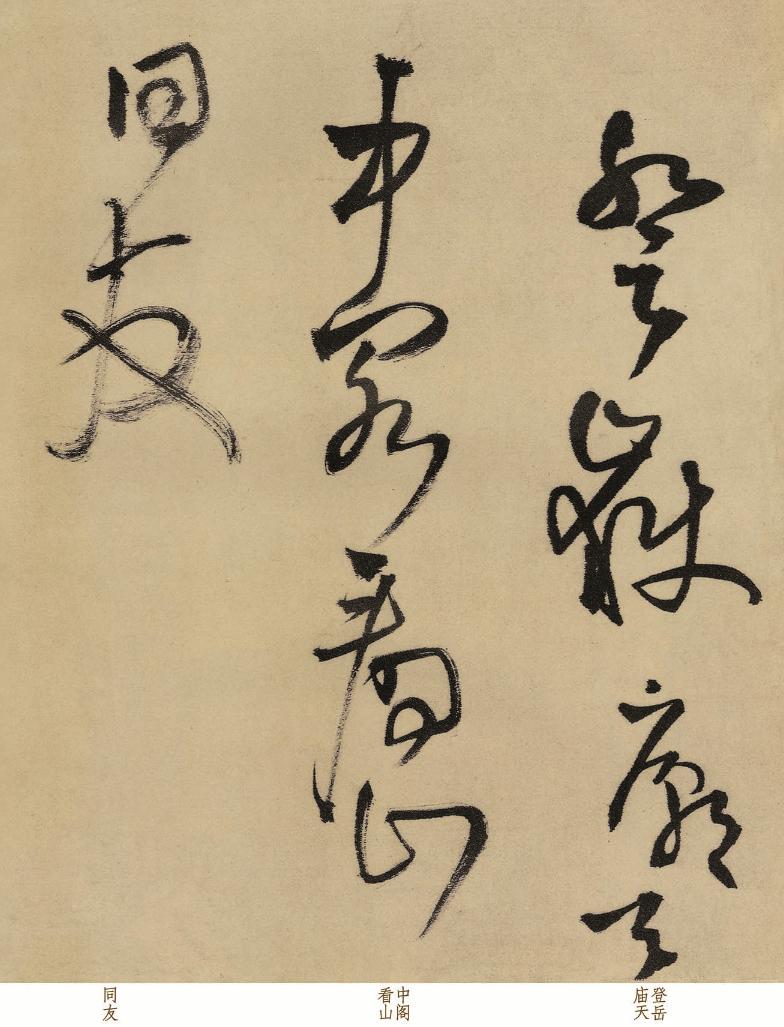 登嶽廟天
中閣看山
同友
登岳
庙天
中阁
看山
同友